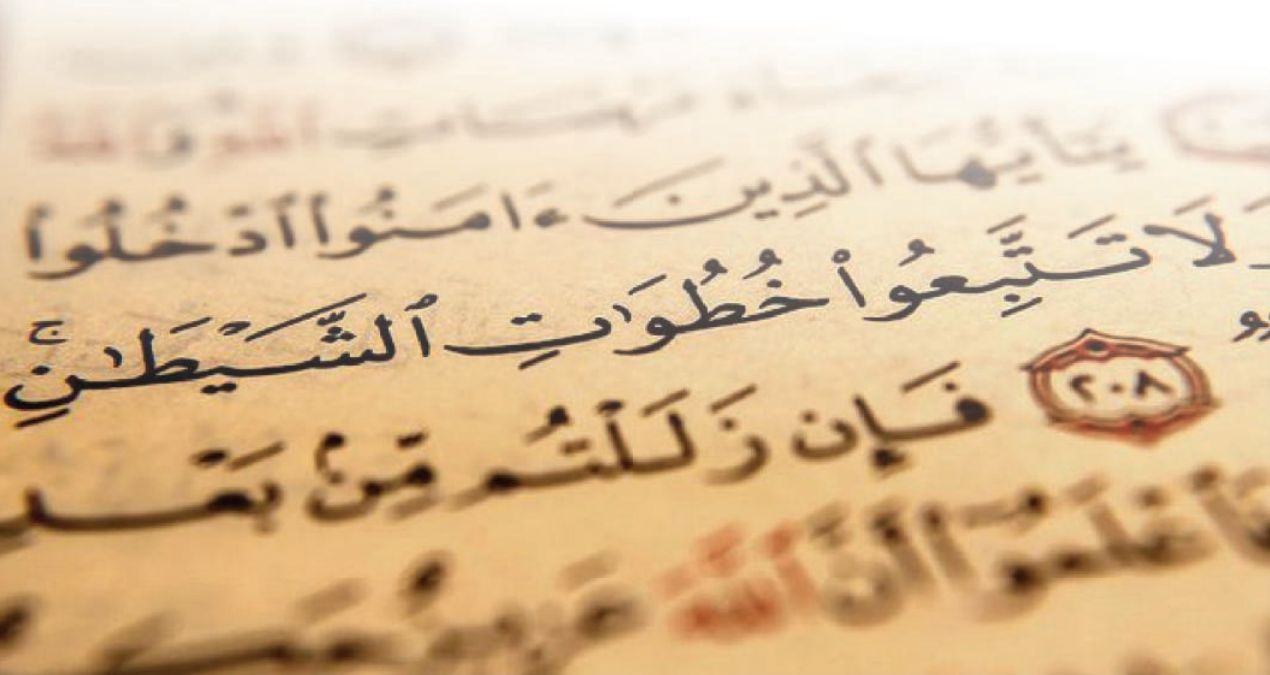 يَٰٓأَيُّهَا ٱلَّذِينَ ءَامَنُوا۟ ٱدْخُلُوا۟
لَا تَتَّبِعُوا۟ خُطُوَٰتِ ٱلشَّيْطَٰنِ ۚ
٢٠٨ فَإِن زَلَلْتُم مِّنۢ بَعْدِ
فَٱعْلَمُوٓا۟ أَنَّ ٱللَّهَ